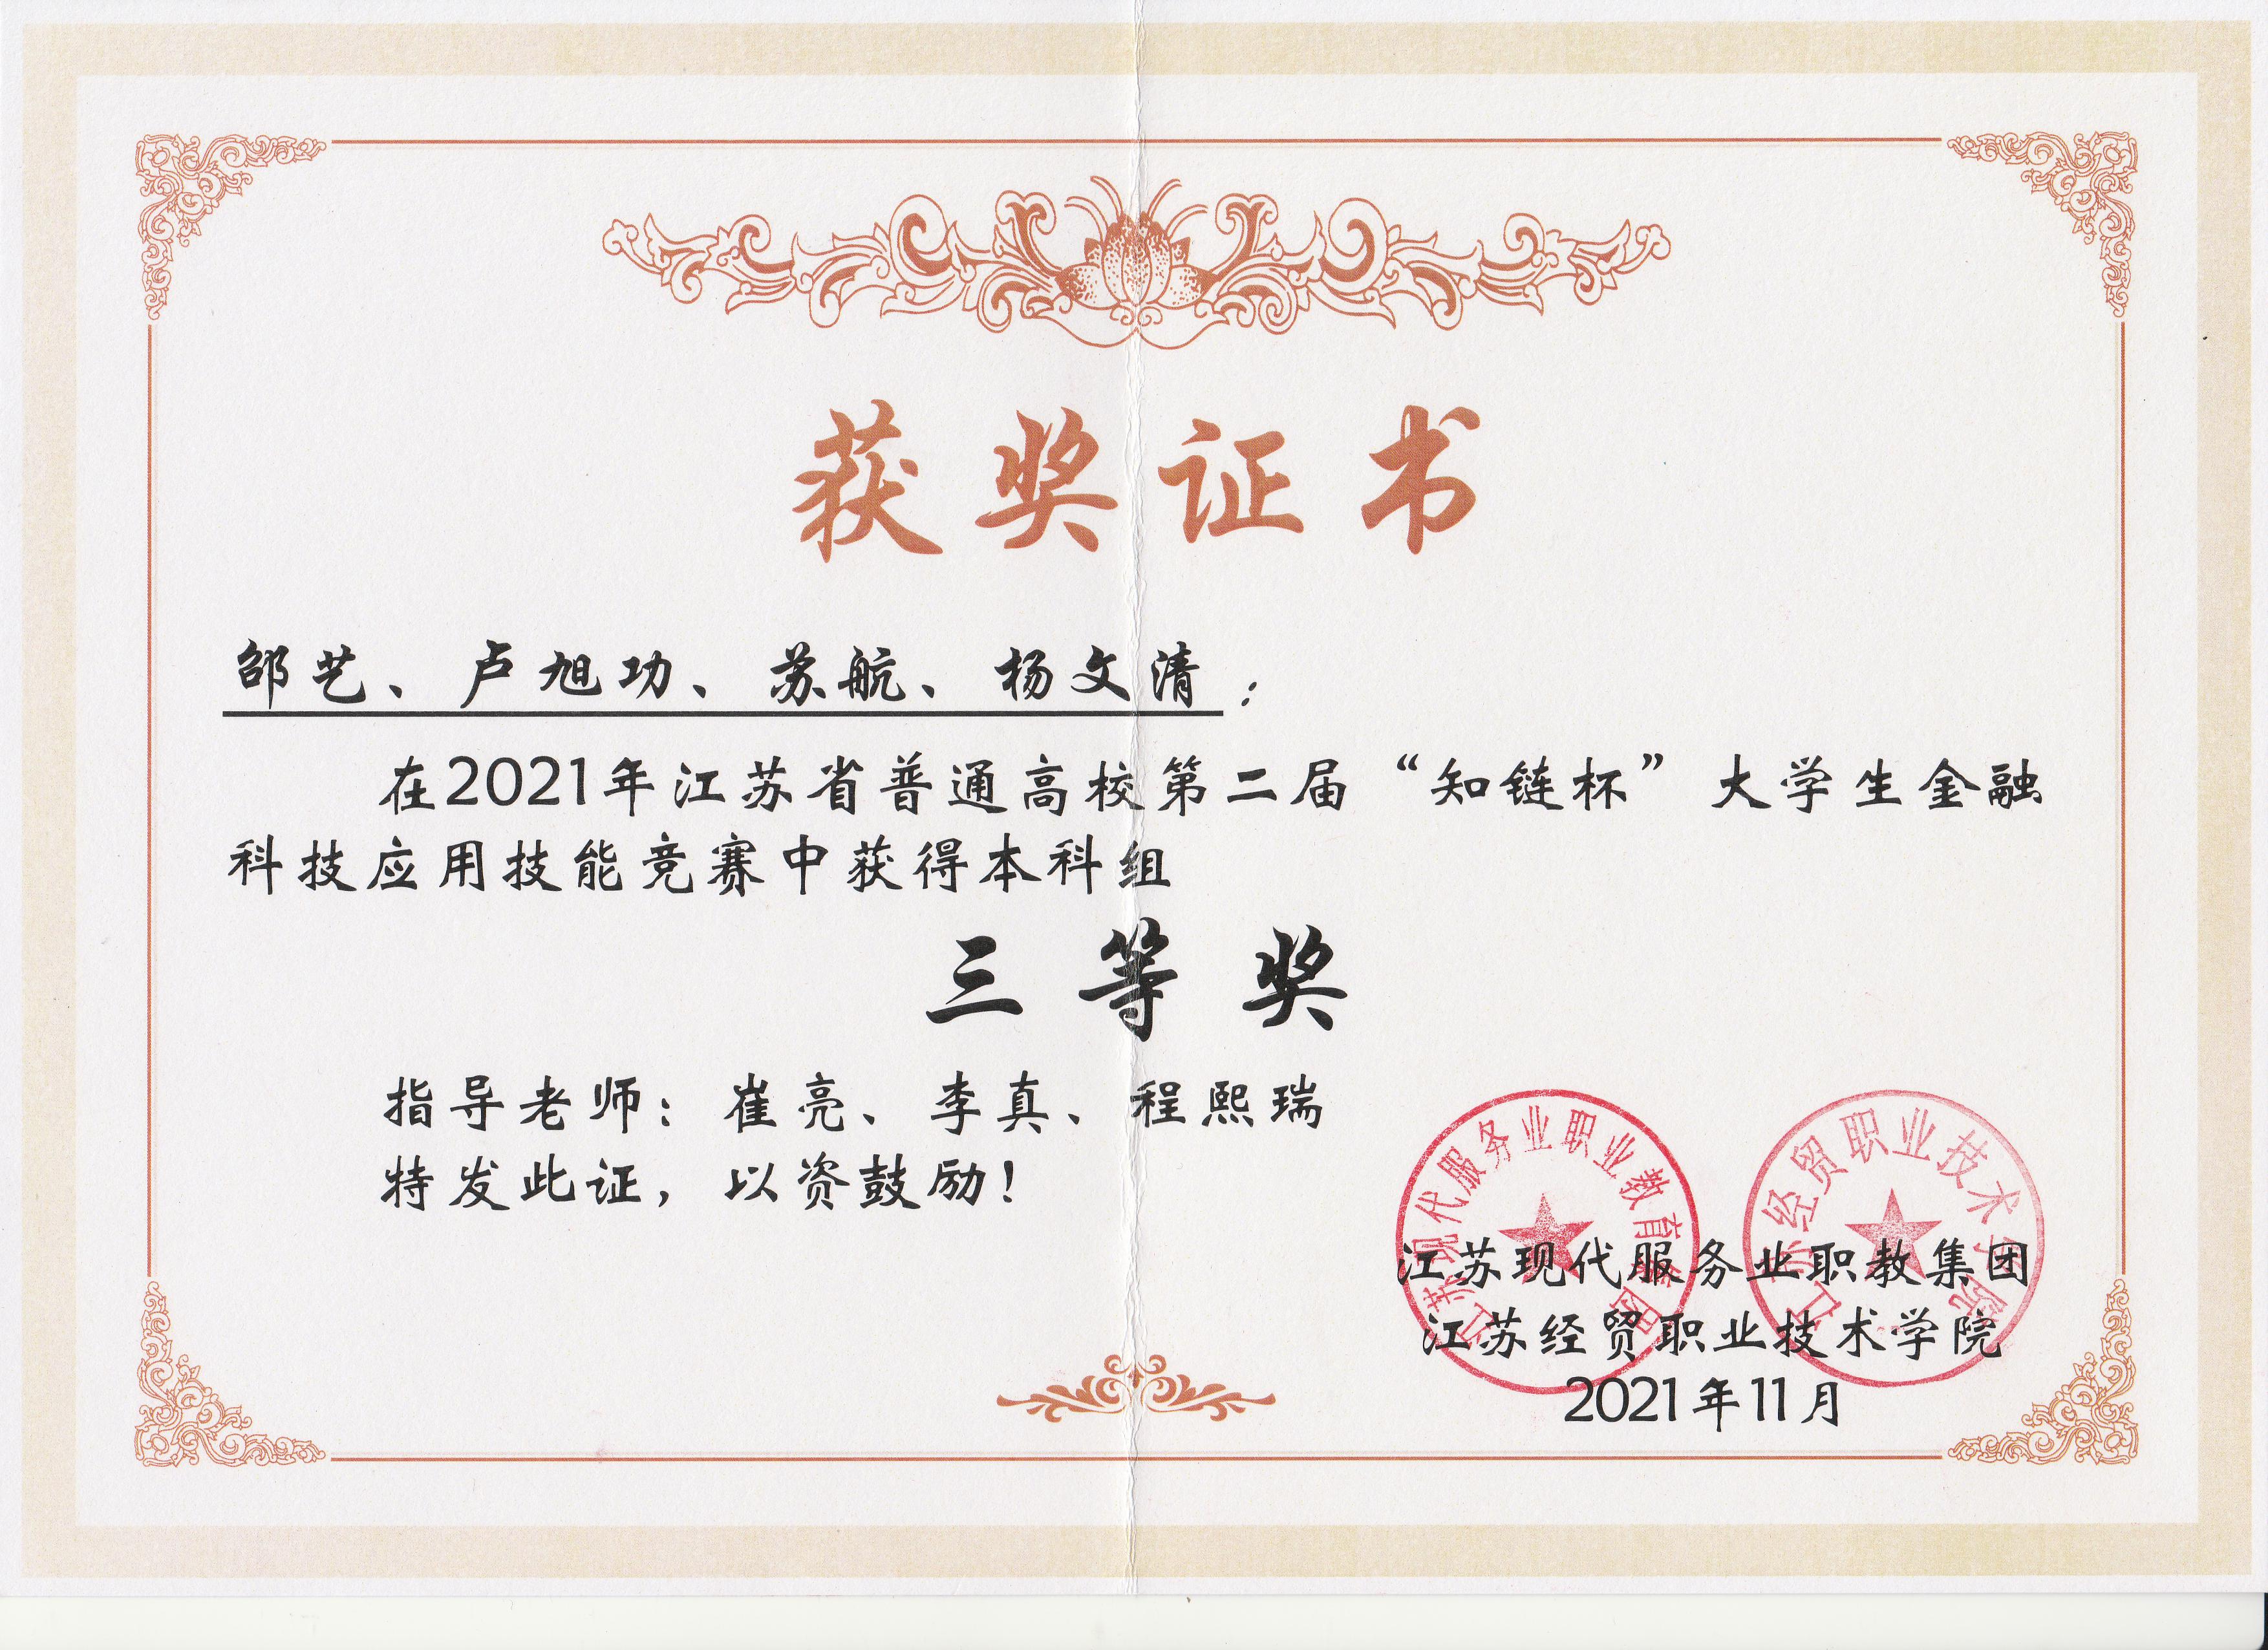 获奖证书
邵艺、卢旭功、苏航、杨文清：
在2021年江苏省普通高校第二届“知链杯”大学生金融
科技应用技能竞赛中获得本科组
三等奖
指导老师：崔亮、李真、程熙瑞
特发此证，以资鼓励！
江苏现代服务业职业教育集团
江苏经贸职业技术学院
江苏现代服务业职教集团
江苏经贸职业技术学院
2021年11月